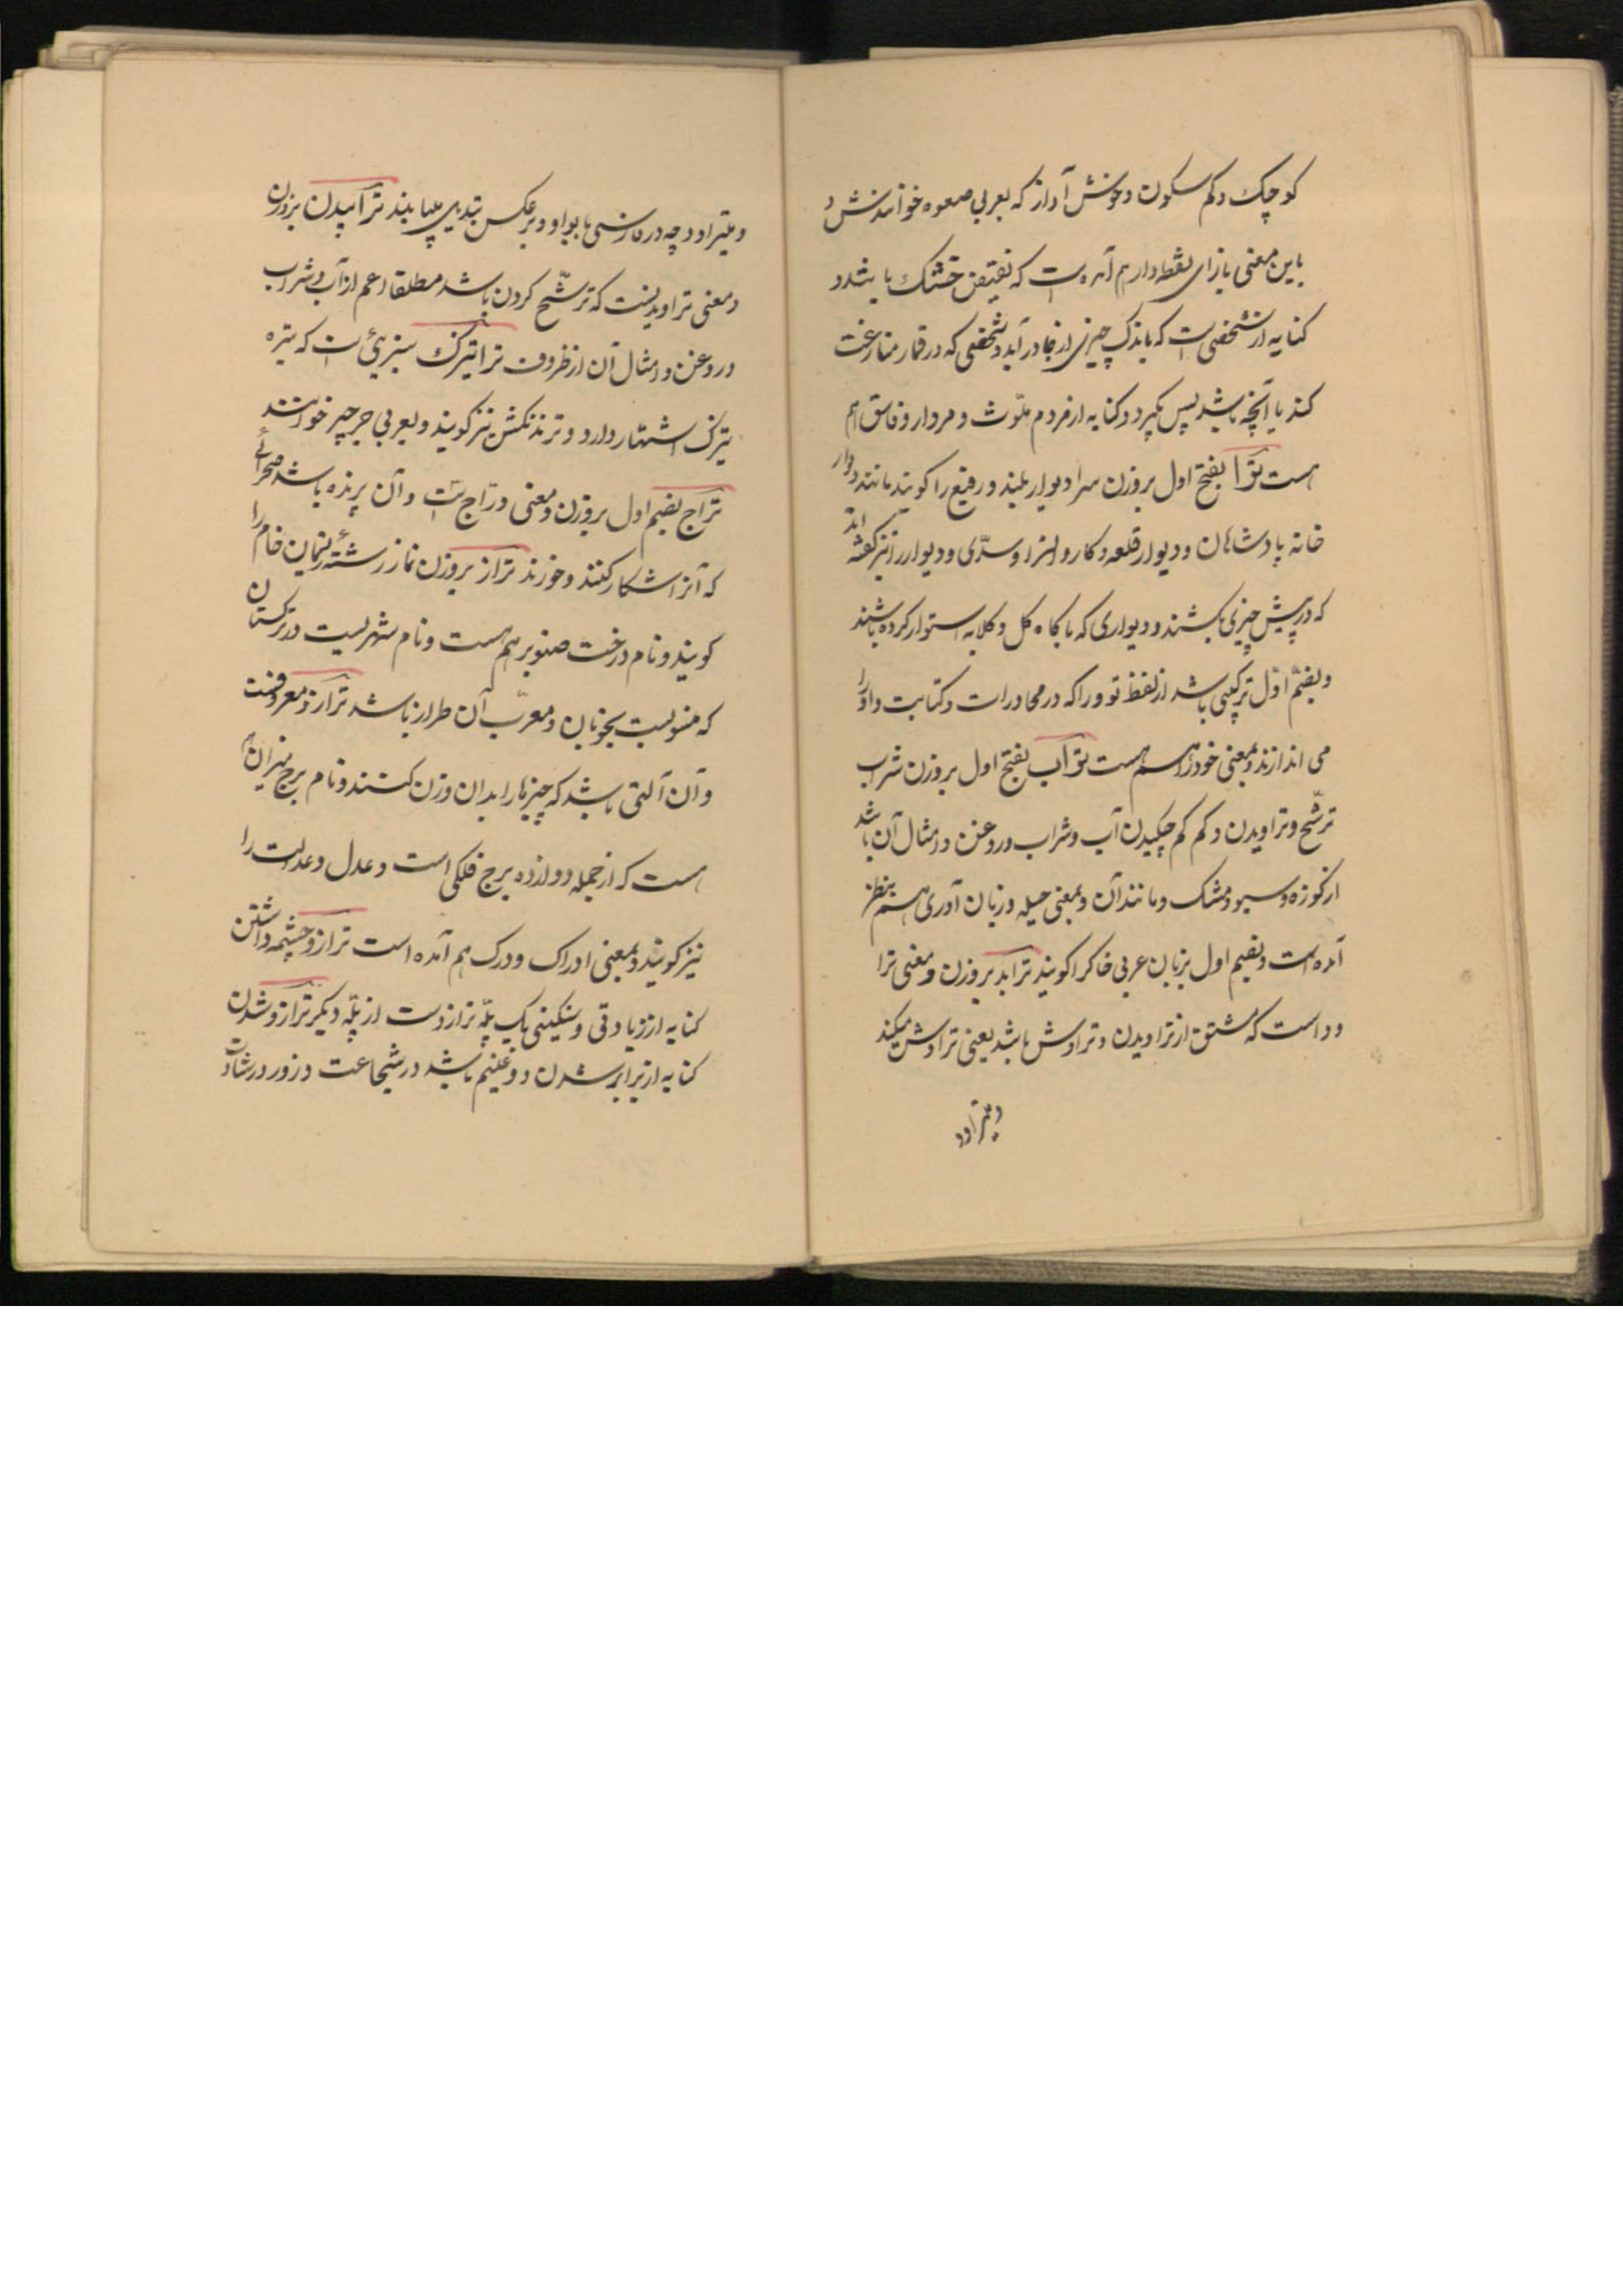 کوچک و کم سکون و خوش آواز که بعربی صعوه خوانندش و
باین معنی بازای نقطه دار هم آمده است که نقیض خشک باشد و
کنایه از شخصی است که باندک چیزی از جا در آید و شخصی که در قمار منازعت
کند یا آنچه باشد پس گیرد و کنایه از مردم ملوّث و مردار و فاسق هم
هست ترا بفتح اول بروزن سرا دیوار بلند و رفیع را گویند مانند دیوار
خانه پادشاهان و دیوار قلعه و کاروانسرا و سدّی و دیوار را نیز گفته اند
که در پیش چیزی بکشند و دیواری که با کاه گل و گلابه استوار کرده باشند
و بضمّ اوّل ترکیبی باشد از لفظ تو و را که در محاورات و کتابت واو را
می اندازند و بمعنی خود را هم هست تراب بفتح اول بروزن شراب
ترشّح و تراویدن و کم کم چکیدن آب و شراب و روغن و امثال آن باشد
از کوزه و سبو و مشک و مانند آن و بمعنی حیله و زبان آوری هم بنظر
آمده است و بضم اول بزبان عربی خاک را گویند ترابد بروزن و معنی ترا
ود است که مشتق از تراویدن و تراوش باشد یعنی تراوش میکند
و میتراود
و میتراود و چه در فارسی با بواو و بر عکس تبدیل مییابند ترابیدن بروزن
و معنی تراویدنست که ترشّح کردن باشد مطلقا اعم از آب و شراب
و روغن و امثال آن از ظروف تراتیزک سبزیئی است که بتره
تیزک اشتهار دارد و ترندکش نیز گویند و بعربی جرجیر خوانند
تراج بضم اول بروزن و معنی درّاج است و آن پرنده باشد صحرائے
که آنرا شکار کنند و خورند تراز بروزن نماز رشتهٔ ریسمان خام را
گویند و نام درخت صنوبر هم هست و نام شهریست در ترکستان
که منسوبست بخوبان و معرّب آن طراز باشد ترازو معروفست
و آن آلتی باشد که چیزها را بدان وزن کنند و نام برج میزان هم
هست که از جمله دوازده برج فلکی است و عدل و عدالت را
نیز گویند و بمعنی ادراک و درک هم آمده است ترازو چشمه داشتن
کنایه از زیادتی و سنگینی یک پلّه ترازوست از پلّه دیگر ترازو شدن
کنایه از برابر شدن دو غنیم باشد در شجاعت و زور و رشادت